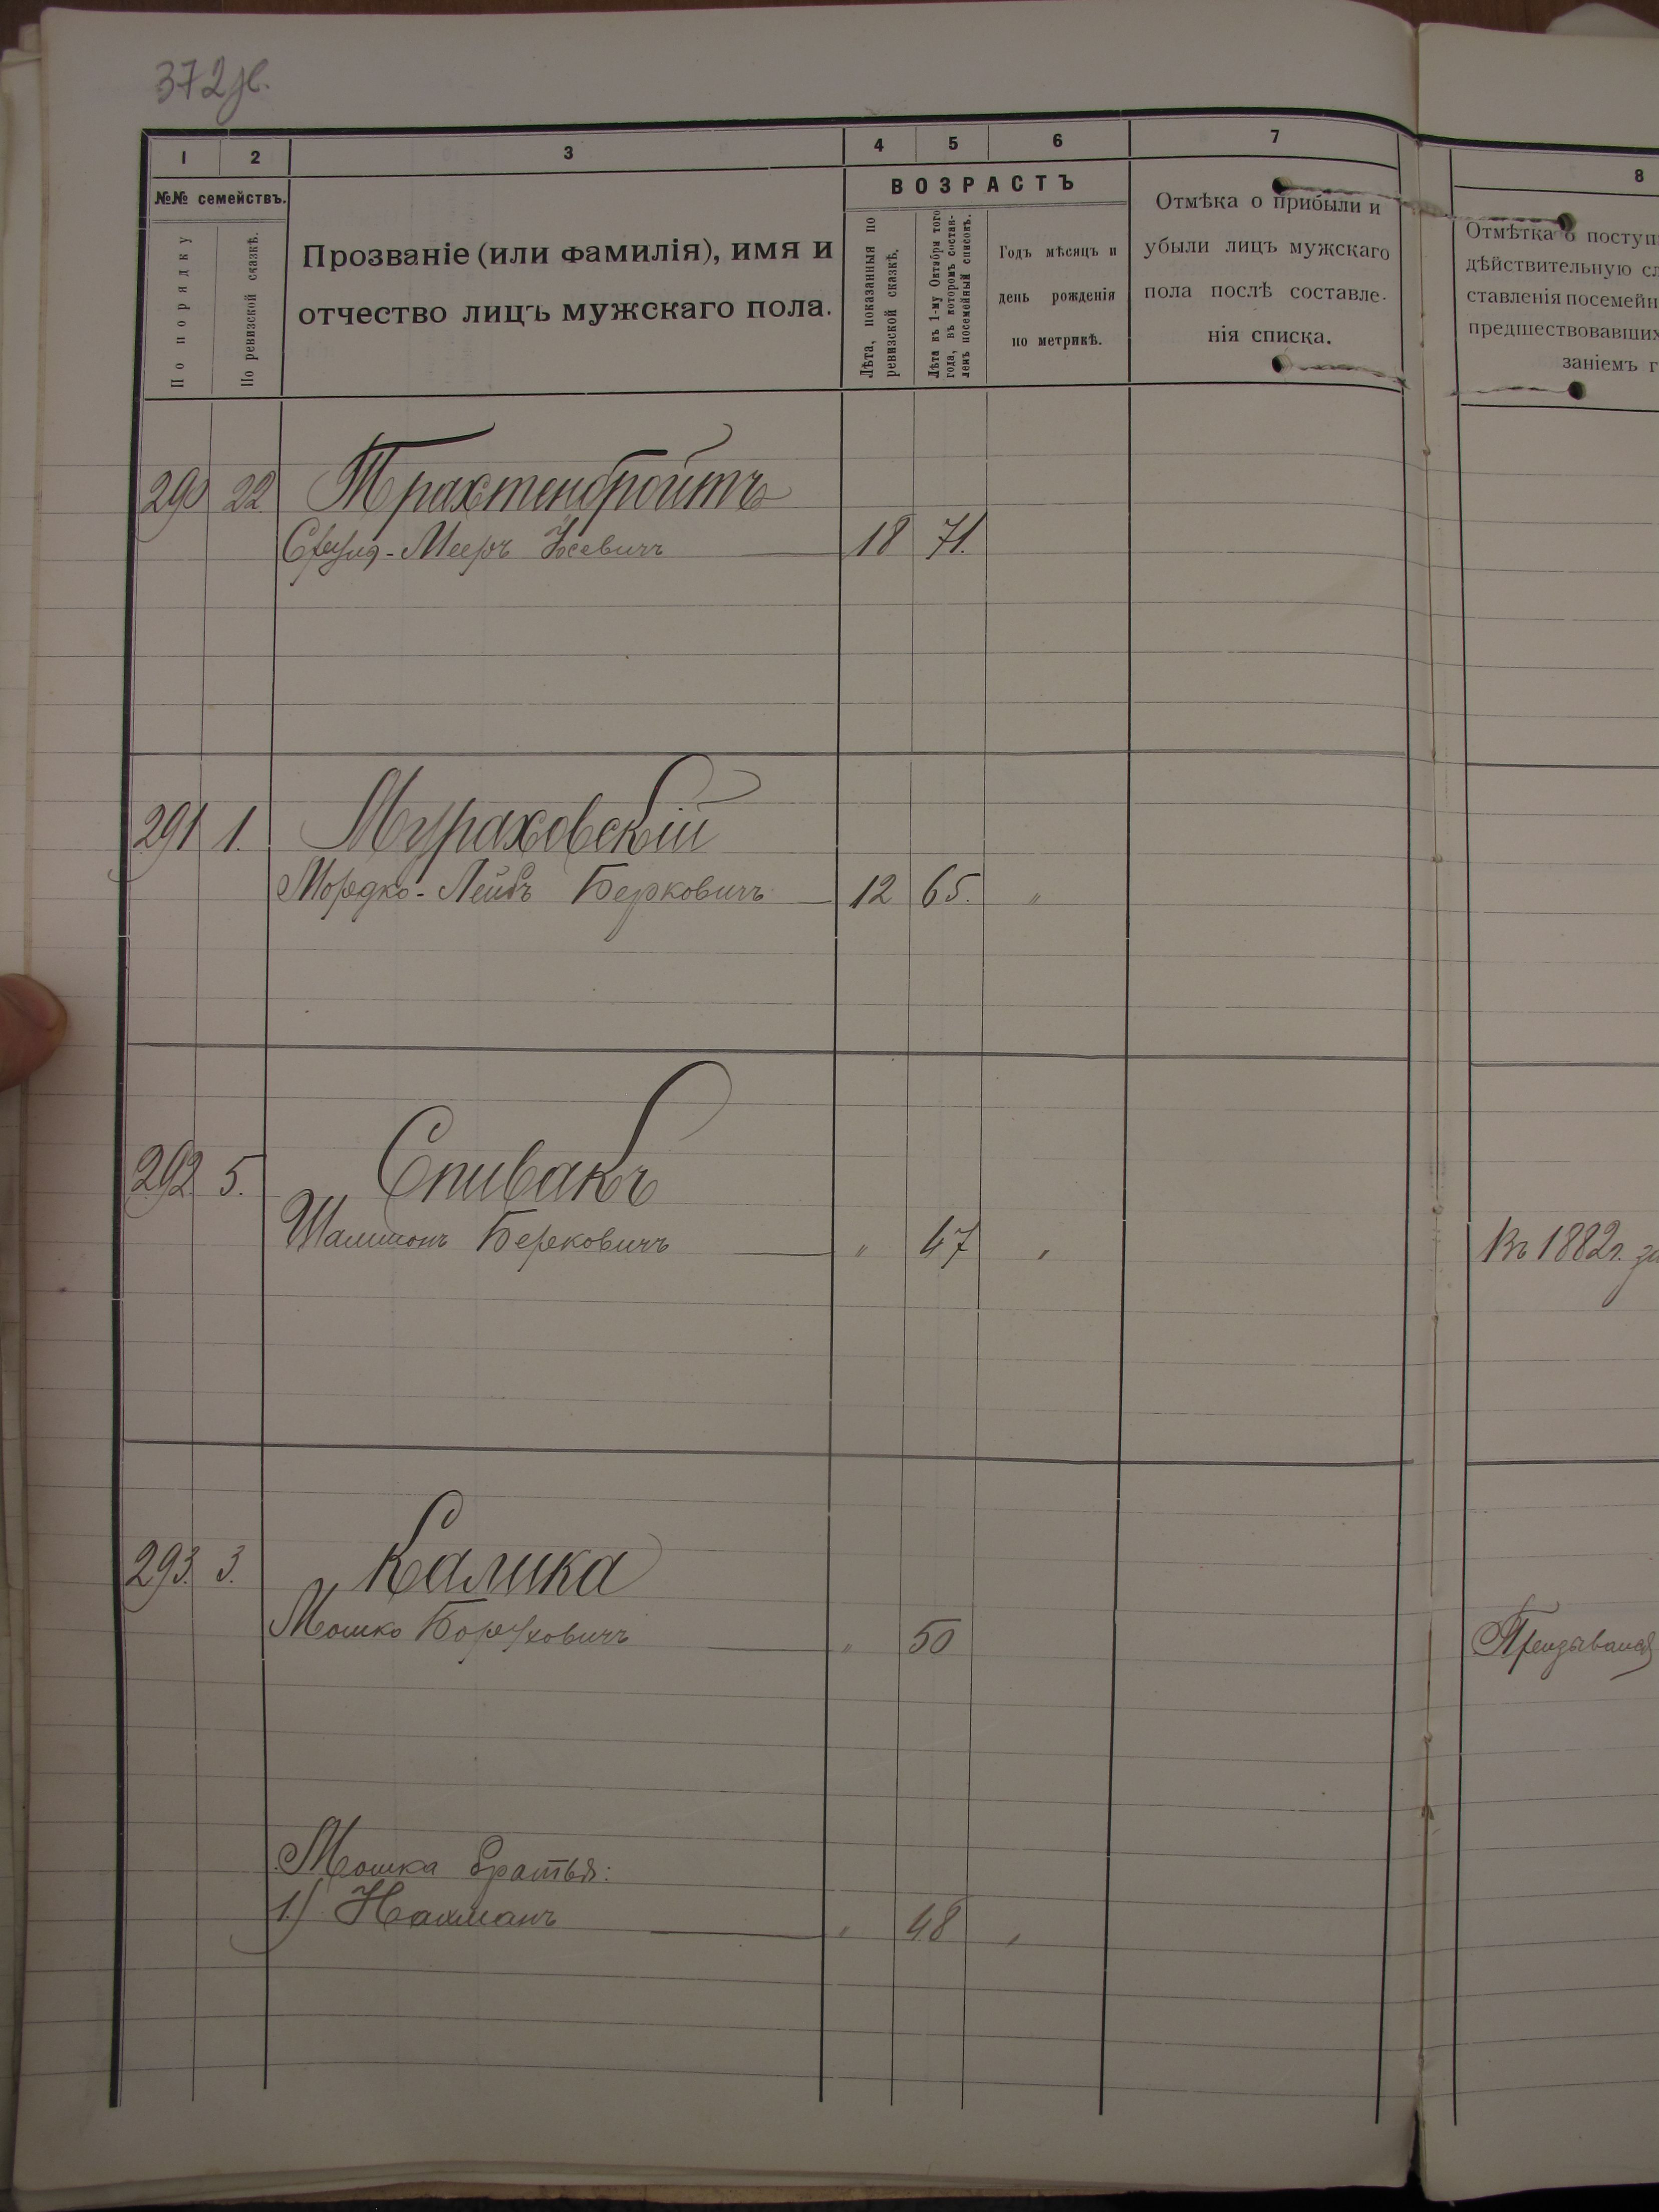 372 об.
1 2 3 4 5 6 7 8
№№ семействъ.
По порядку
По ревизской сказкѣ.
Прозваніе (или фамилія), имя и
отчество лицъ мужскаго пола.
ВОЗРАСТЪ
Лѣта, показанныя по
ревизской сказкѣ.
Лѣта къ 1-му Октября того
года, въ которомъ состав-
ленъ посемейный списокъ.
Годъ мѣсяцъ и
день рожденія
по метрикѣ.
Отмѣка о прибыли и
убыли лицъ мужскаго
пола послѣ составле-
нія списка.
Отмѣтка о поступ
дѣйствительную сл
ставленія посемейн
предшествовавших
заніемъ г
290 22 Трахтенбройтъ
Сруль-Мееръ Іосевичъ 18 71.
291 1. Мураховскій
Мордко-Лейбъ Берковичъ 12 65. "
292. 5. Спивакъ
Шамшонъ Берковичъ " 47 "
Въ 1882 г. за
293. 3. Калика
Мошко Боруховичъ " 50
Призывался
Мошка братья:
1) Нахманъ " 48 "